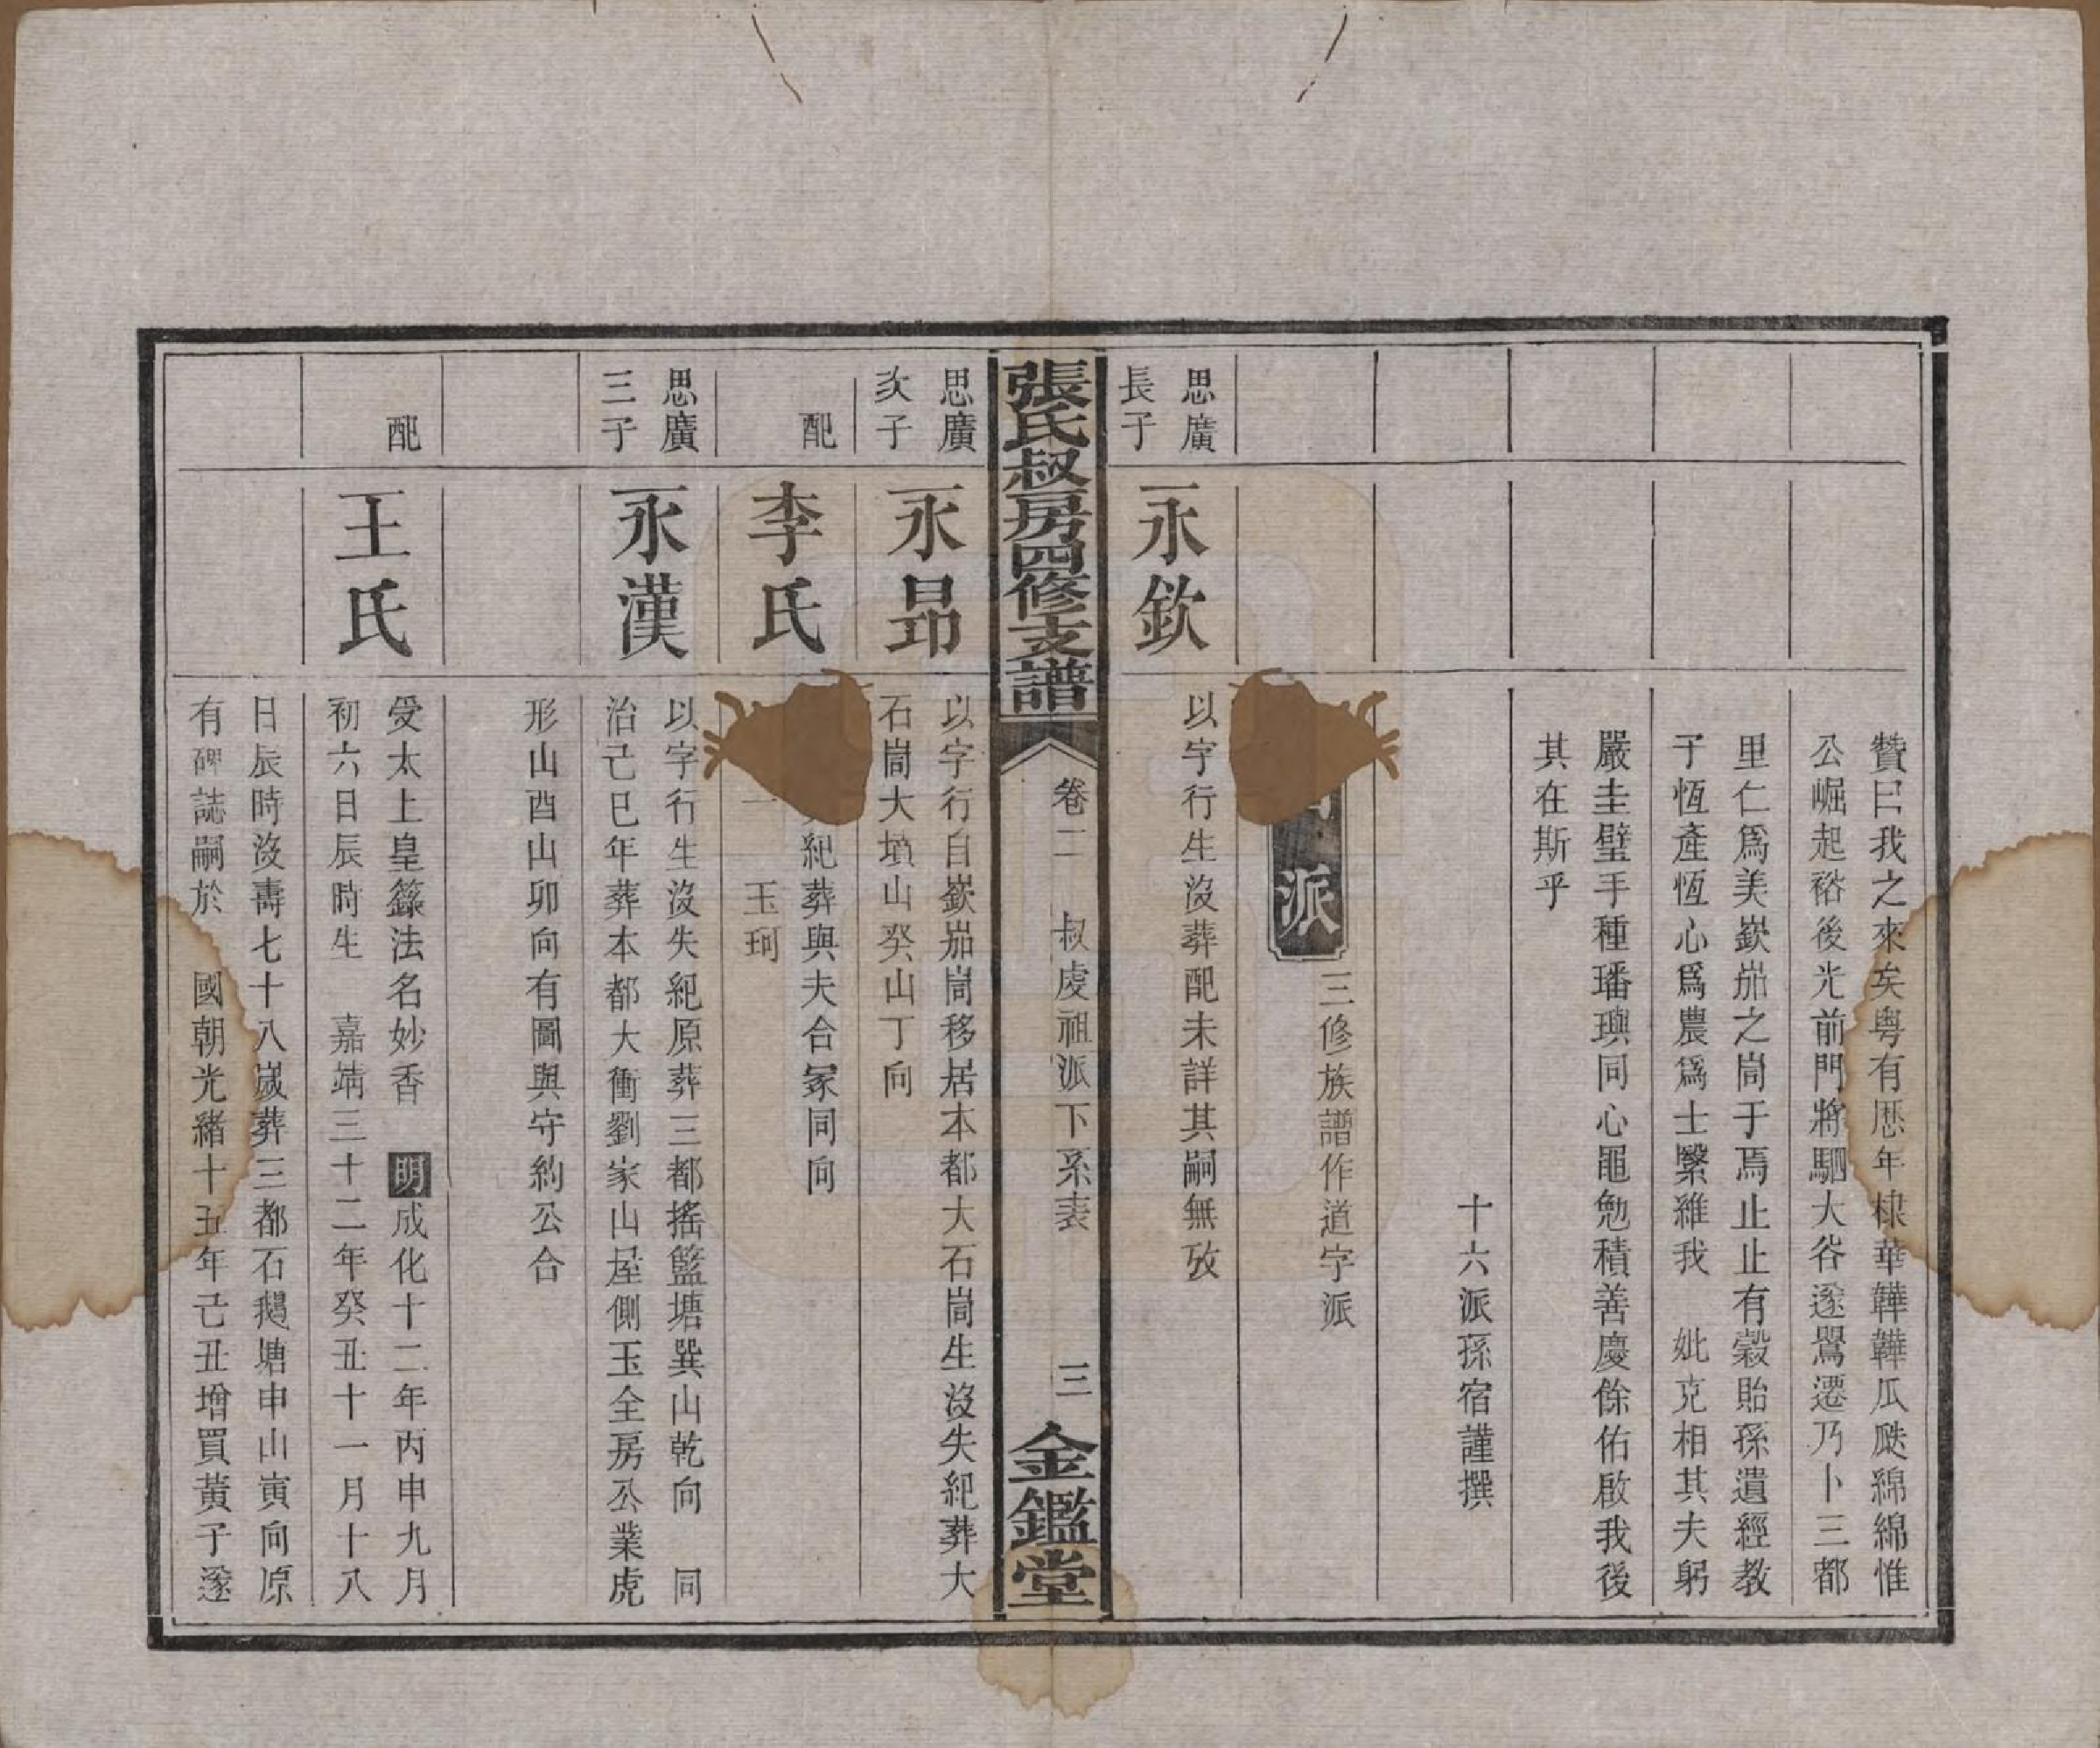 贊曰我之來矣粵有歷年棣華韡韡瓜瓞綿綿惟
公崛起裕後光前門將駟大谷遂鶯遷乃卜三都
里仁爲美嶔岇之峝于焉止止有穀貽孫遺經教
子恆產恆心爲農爲士繄維我 妣克相其夫躬
嚴圭璧手種璠璵同心黽勉積善慶餘佑啟我後
其在斯乎
十六派孫宿謹撰
派 三修族譜作道字派
思廣長子 永欽 以字行生沒葬配未詳其嗣無攷
張氏叔房四修支譜 卷二 叔虔祖派下系表 三 金鑑堂
思廣次子 永昂 以字行自嶔岇峝移居本都大石峝生沒失紀葬大
石峝大墳山癸山丁向
配 李氏 紀葬與夫合冢同向
一 玉珂
思廣三子 永漢 以字行生沒失紀原葬三都搖籃塘巽山乾向 同
治己巳年葬本都大衝劉家山屋側玉全房公業虎
形山酉山卯向有圖與守約公合
配 王氏 受太上皇籙法名妙香 明成化十二年丙申九月
初六日辰時生 嘉靖三十二年癸丑十一月十八
日辰時沒壽七十八歲葬三都石鵝塘申山寅向原
有碑誌嗣於 國朝光緒十五年己丑增買黃子遂